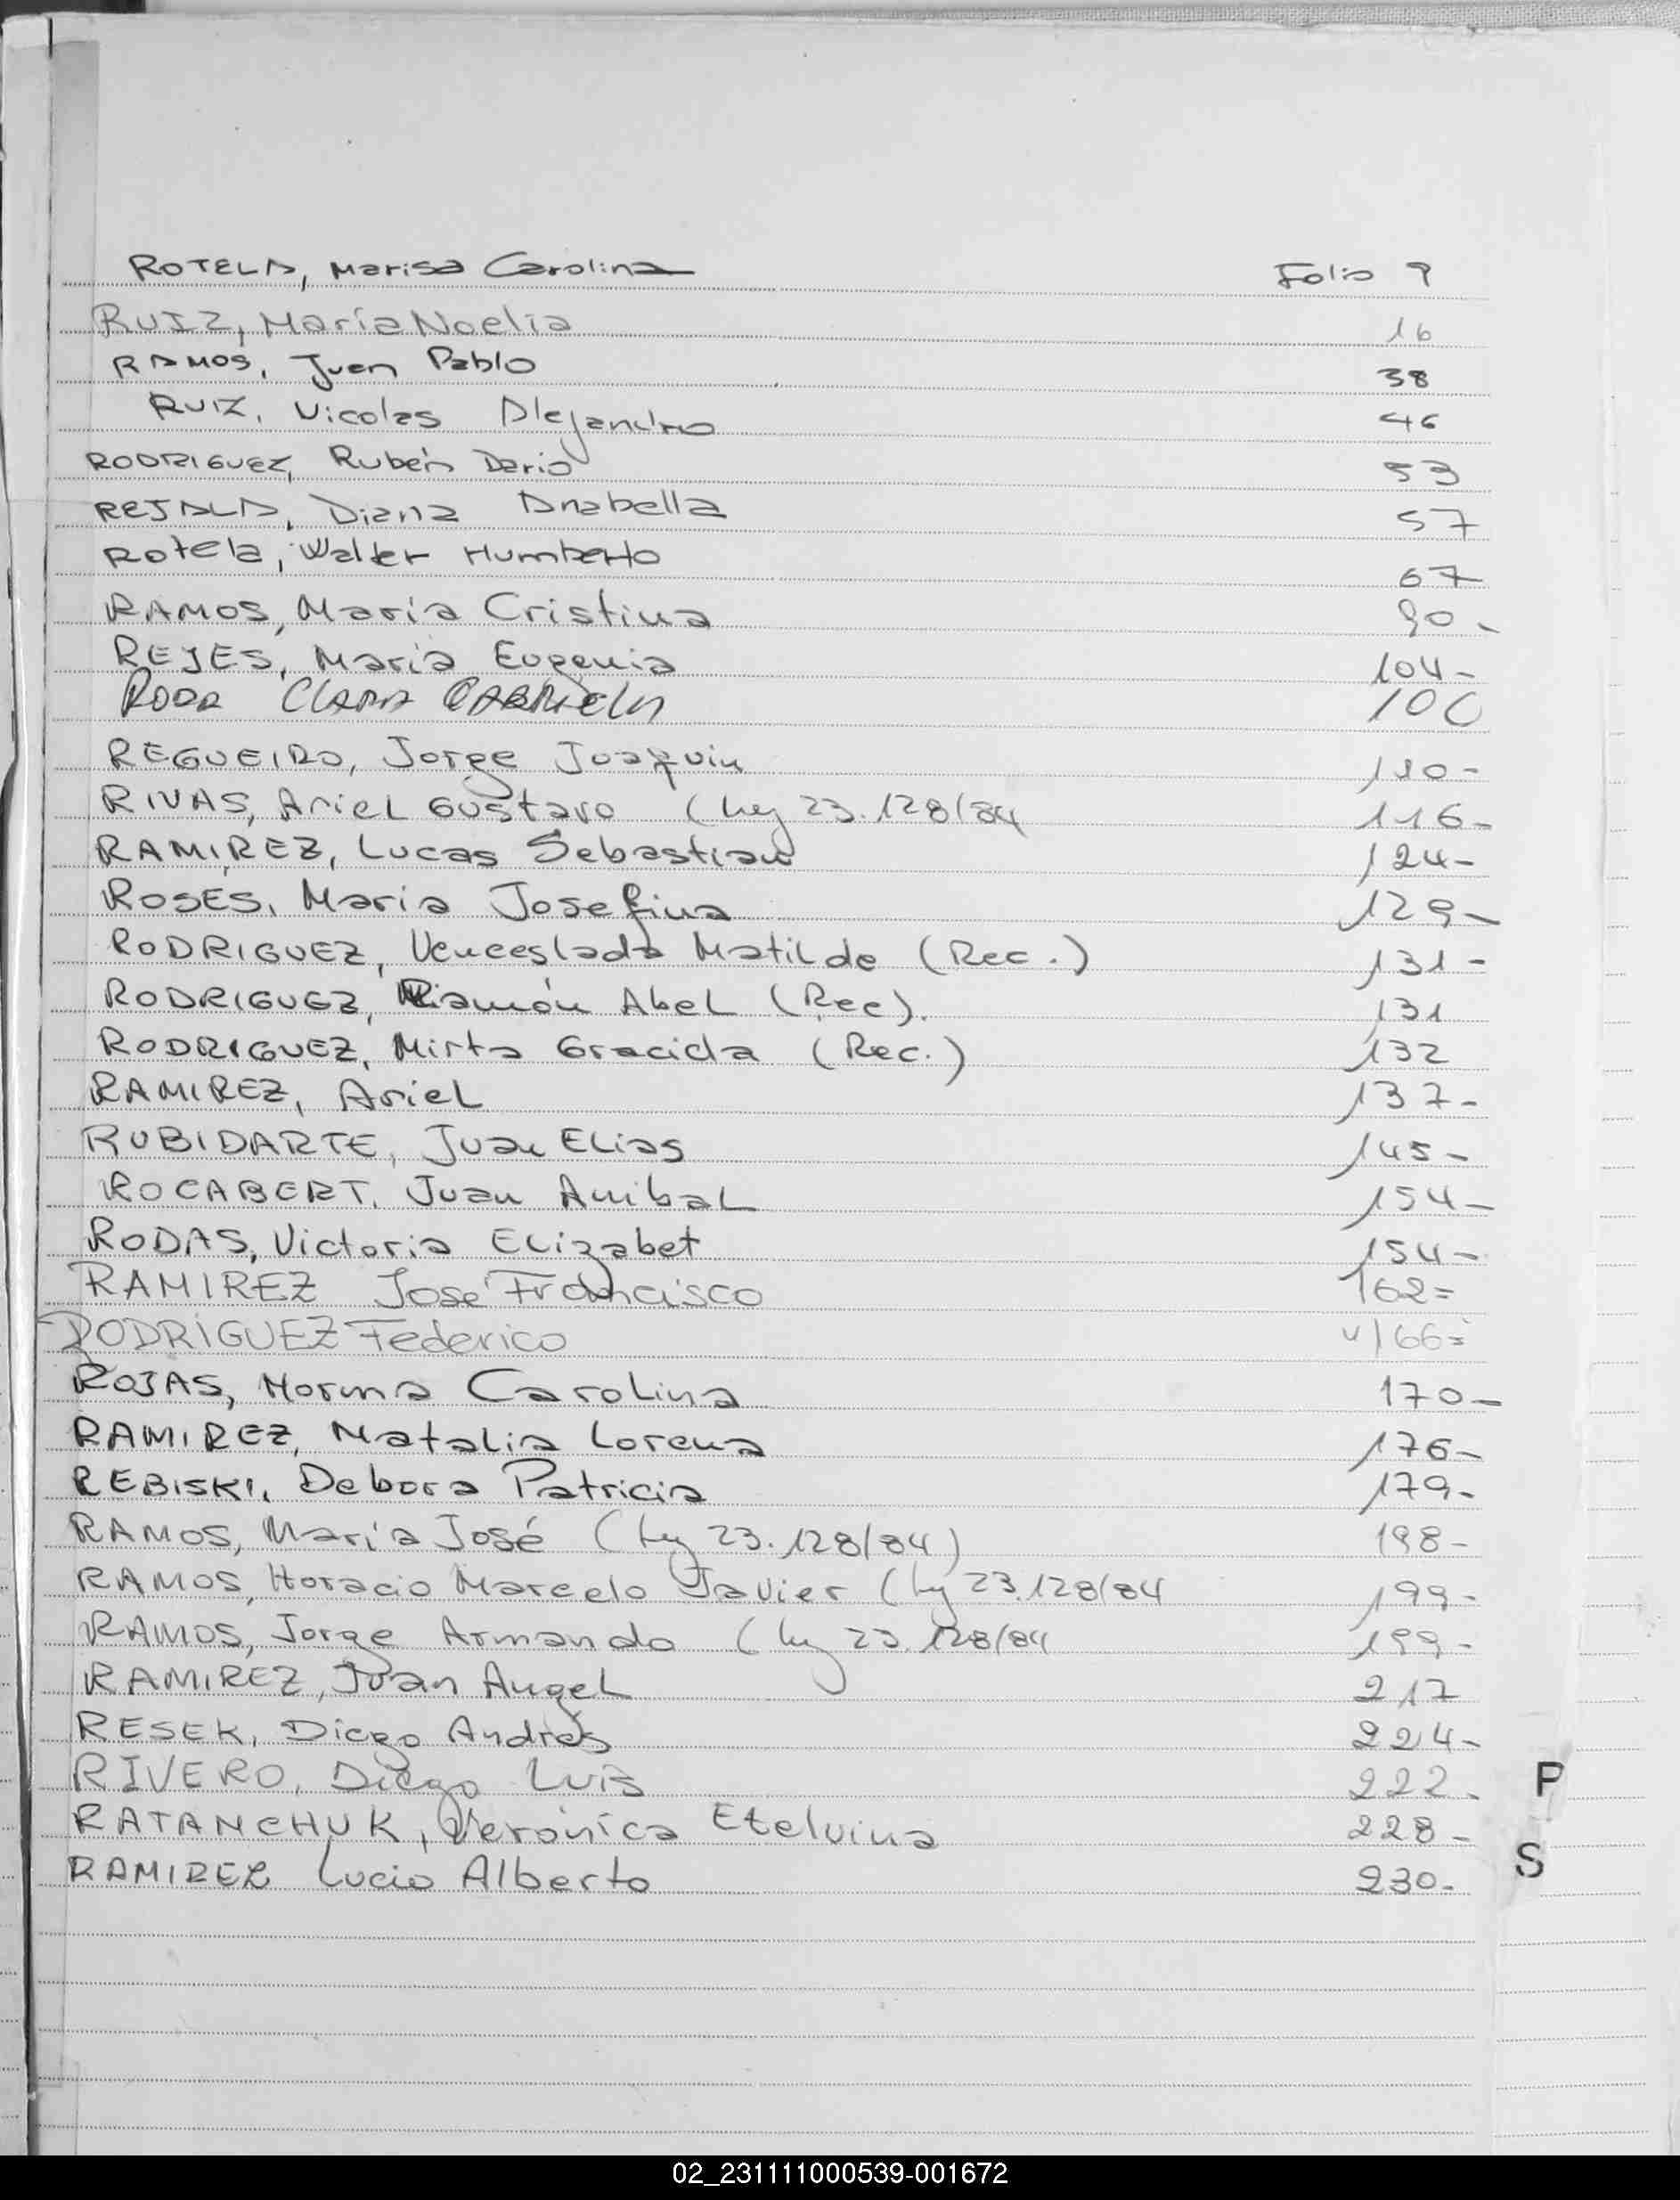 ROTELA, Marisa Carolina Folio 9
RUIZ, María Noelia 16
RAMOS, Juan Pablo 38
RUIZ, Nicolas Alejandro 46
RODRIGUEZ, Rubén Dario 53
REJALA, Diana Anabella 57
Rotela, Walter Humberto 67
RAMOS, María Cristina 90-
REJES, María Eugenia 104-
RODA CLARA GABRIELA 106
REGUEIRO, Jorge Joaquin 110-
RIVAS, Ariel Gustavo (Ley 23.128/84 116-
RAMIREZ, Lucas Sebastian 124-
ROSES, Maria Josefina 129-
RODRIGUEZ, Venceslada Matilde (Rec.) 131-
RODRIGUEZ, Ramón Abel (Rec). 131
RODRIGUEZ, Mirta Gracida (Rec.) 132
RAMIREZ, Ariel 137-
RUBIDARTE, Juan Elias 145-
ROCABERT, Juan Anibal 154-
RODAS, Victoria Elizabet 154-
RAMIREZ José Francisco 162=
RODRIGUEZ Federico 166=
ROJAS, Norma Carolina 170-
RAMIREZ, Natalia Lorena 176-
REBISKI, Debora Patricia 179-
RAMOS, María José (Ley 23.128/84) 198-
RAMOS, Horacio Marcelo Javier (Ley 23.128/84 199-
RAMOS, Jorge Armando (Ley 23.128/84 199-
RAMIREZ, Juan Angel 217
RESEK, Diego Andrés 224-
RIVERO, Diego Luis 222-
P
RATANCHUK, Verónica Etelvina 228-
S
RAMIREZ Lucio Alberto 230-
02_231111000539-001672